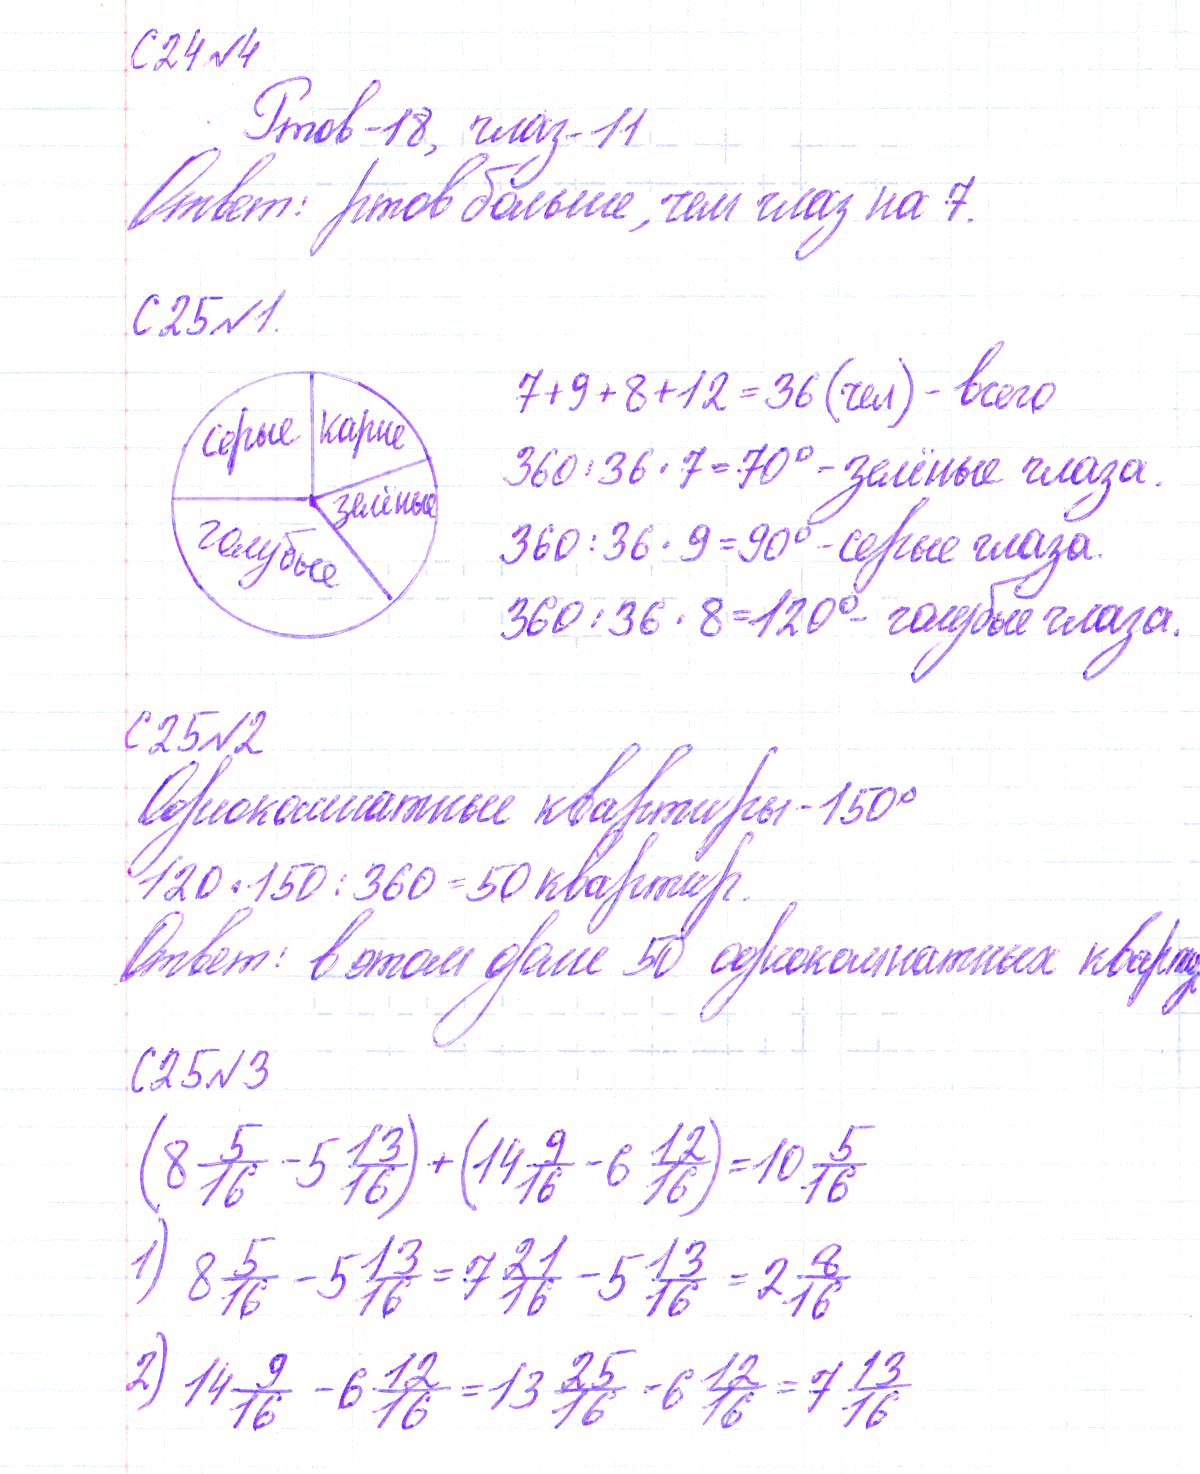 С24№4
Ртов-18, глаз-11
Ответ: ртов больше, чем глаз на 7.
С25№1.
серые карие
зелёные
голубые
7+9+8+12=36(чел)-всего
360:36·7=70°-зелёные глаза.
360:36·9=90°-серые глаза.
360:36·8=120°-голубые глаза.
С25№2
Однокомнатные квартиры-150°
120·150:360=50 квартир.
Ответ: в этом доме 50 однокомнатных кварти
С25№3
(8 5/16 - 5 13/16) + (14 9/16 - 6 12/16) = 10 5/16
1) 8 5/16 - 5 13/16 = 7 21/16 - 5 13/16 = 2 8/16
2) 14 9/16 - 6 12/16 = 13 25/16 - 6 12/16 = 7 13/16